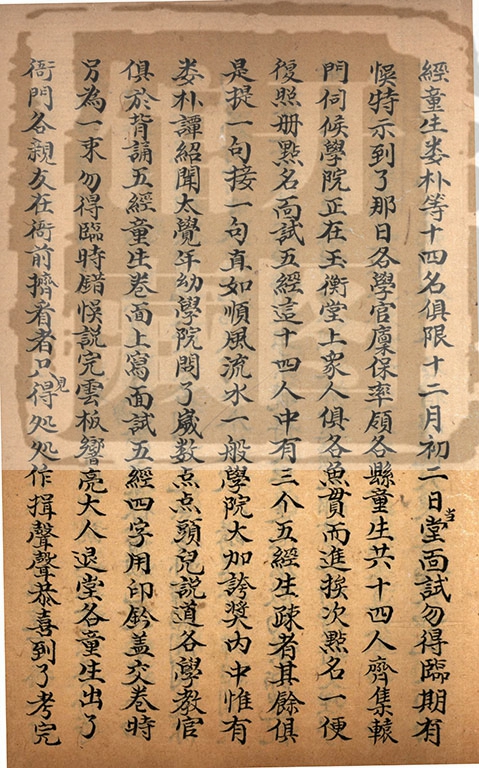 經童生娄朴等十四名俱限十二月初二日當堂面試勿得臨期有
悞特示到了那日各學官廩保率領各縣童生共十四人齊集轅
門伺候學院正在玉衡堂上衆人俱各魚貫而進挨次點名一便
復照册點名面試五經這十四人中有三个五經生疎者其餘俱
是提一句接一句直如順風流水一般學院大加誇奬内中惟有
娄朴譚紹聞大覺年幼學院問了歲数点点頭兒説道各學教官
俱於背誦五經童生卷面上寫面試五經四字用印鈐盖交卷時
另為一束勿得臨時錯悞説完雲板響亮大人退堂各童生出了
衙門各親友在衙前擠看者只見得処処作揖聲聲恭喜到了考完